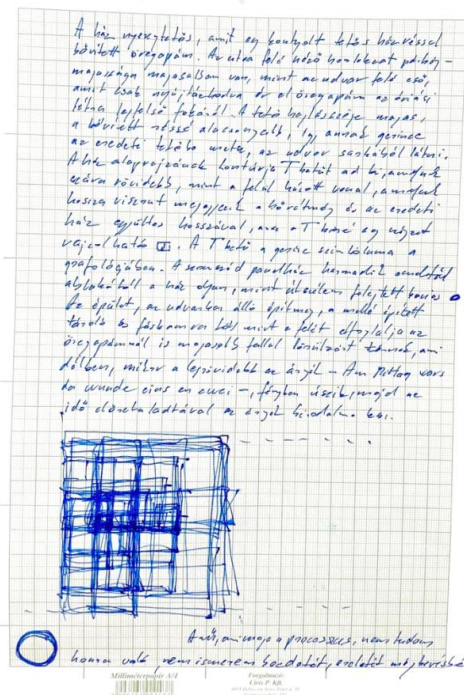 A ház nyeregtetős, amit egy kontyolt tetős házrésszel
bővített öregapám. Az utca felé néző homlokzat párkány-
magassága magasabban van, mint az udvar felé eső,
amit csak nyújtózkodva ér el öregapám az óriási
létra legfelső fokáról. A tető hajlásszöge magas,
a bővített részé alacsonyabb, így annak gerince
az eredeti tetőbe metsz, az udvar sarkából látni.
A ház alaprajzának kontúrja T betűt ad ki, annak
szára rövidebb, mint a felül húzott vonal, annak
hossza viszont megegyezik a bővítmény és az eredeti
ház együttes hosszával, azaz a T köré egy négyzet
rajzolható. A T betű a gerinc szimbóluma a
grafológiában. A szomszéd panelház harmadik emeleti
ablakából a ház olyan, mint útszélen felejtett
Az épület, az udvarban álló építmény, a mellé épített
tároló és fáskamra több mint a felét elfoglalja az
öregapámnál is magasabb fallal
délben, mikor a legrövidebb az árnyék – Am Mittag wars
da wurde eins zu zwei –, fényben úszik, majd az
idő előrehaladtával az árnyék birodalma lesz.
A mű, ami maga a processzus, nem tudom
honnan való, nem ismerem kezdetét, eredetét
Milliméterpapír A/4
Forgalmazó: